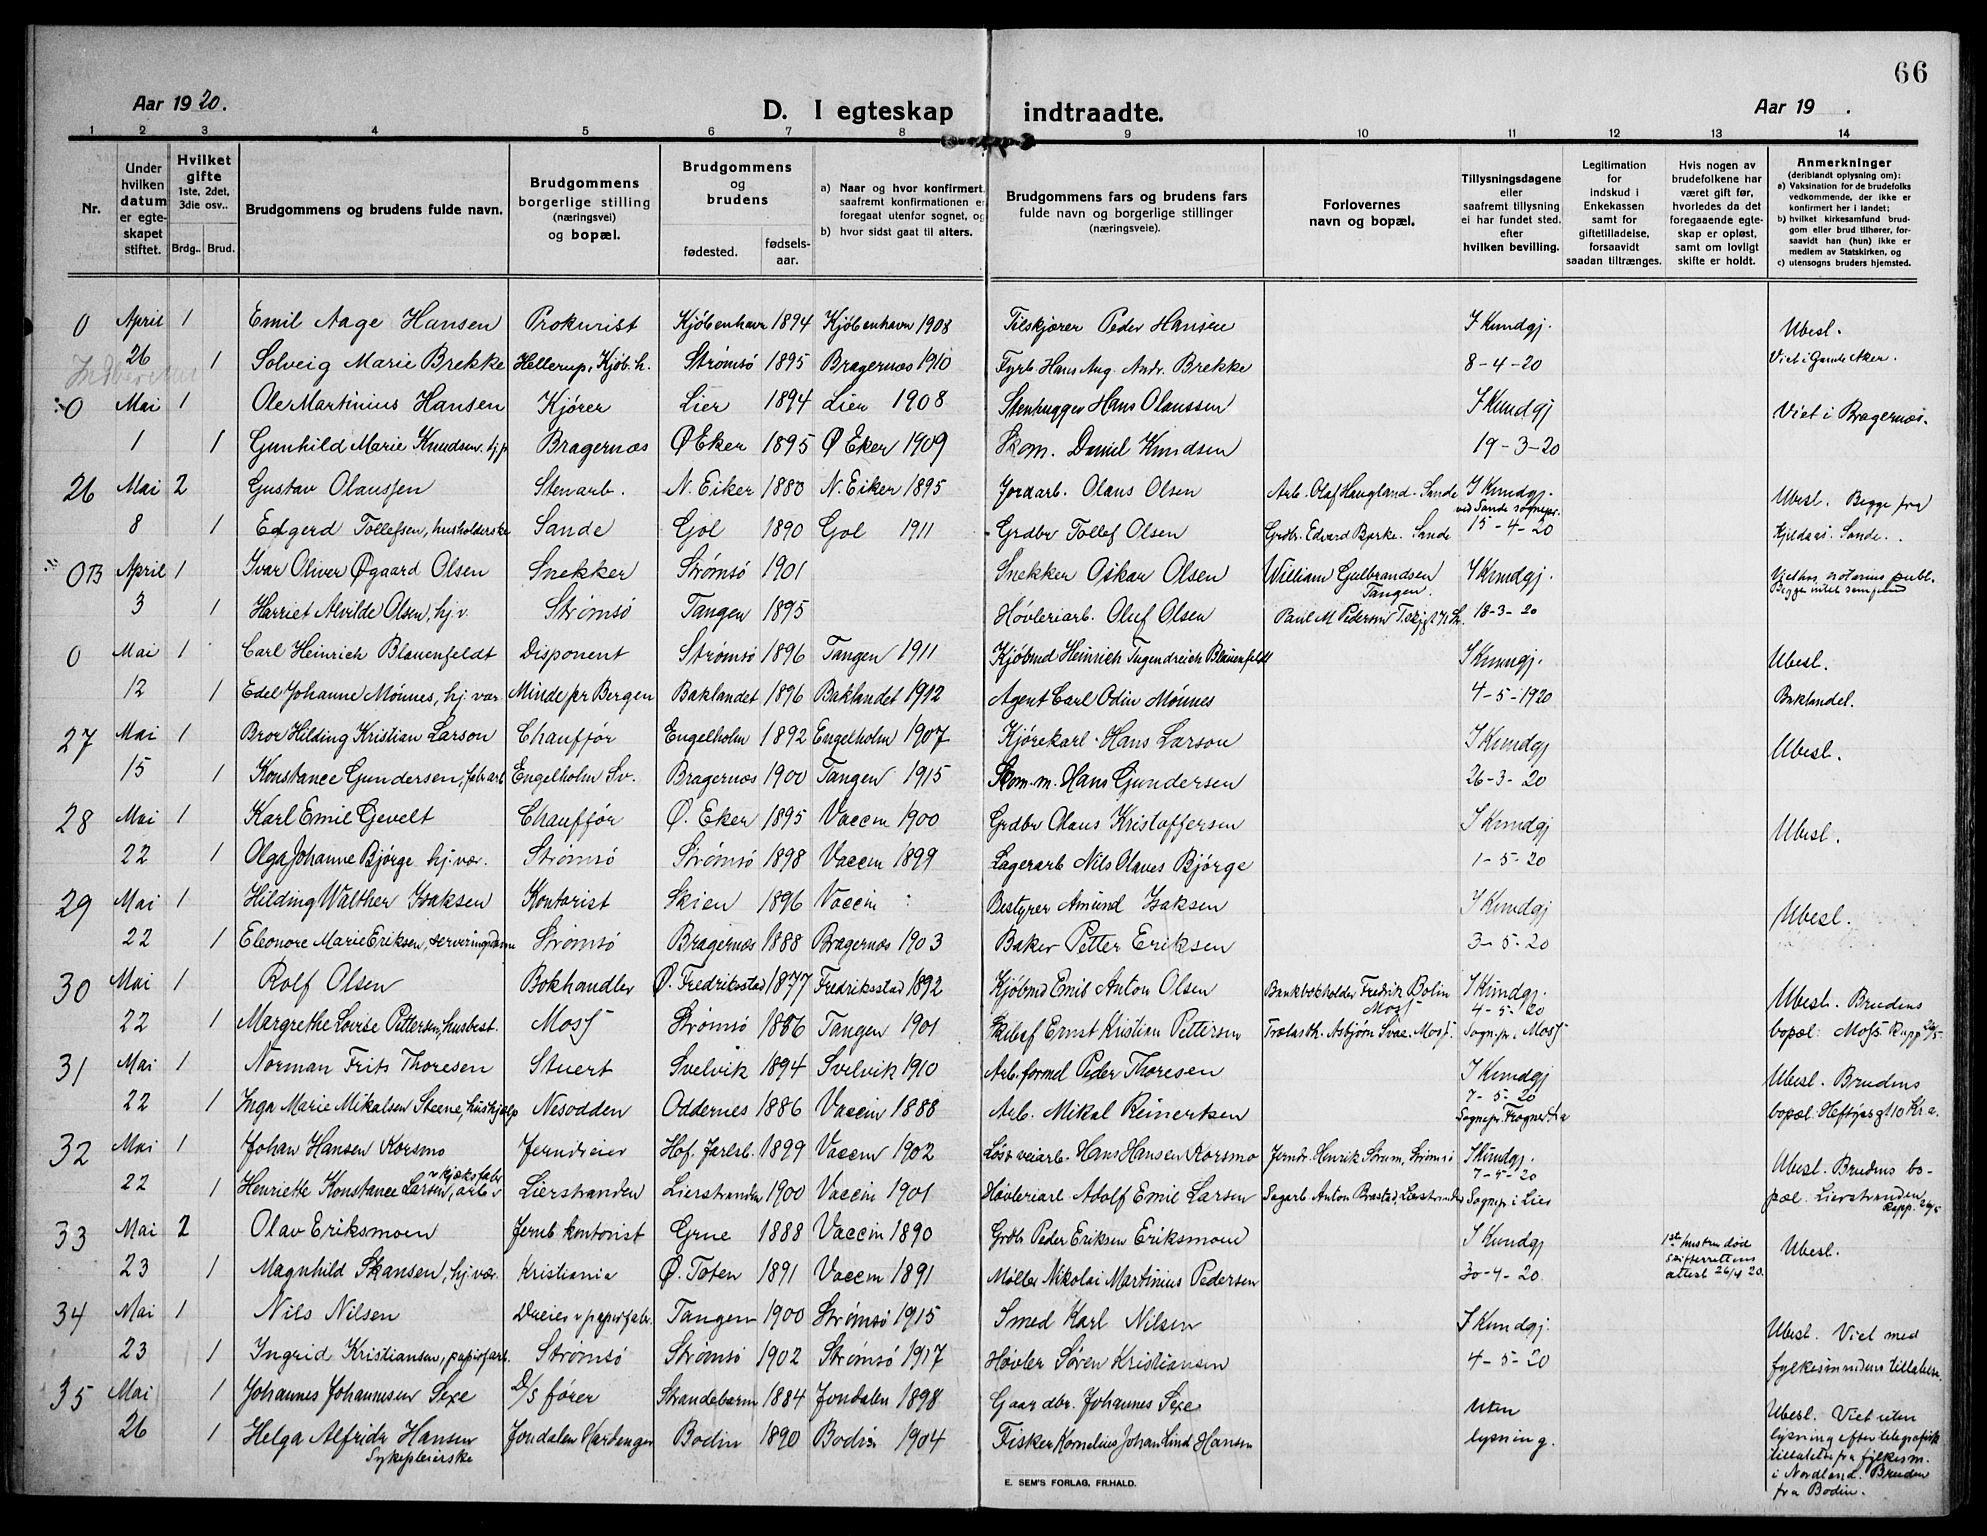 66
Aar 1920.
D. I egteskap indtraadte.
Aar 19 .
1 2 3 4 5 6 7 8 9 10 11 12 13 14
Nr.
Under hvilken datum er egteskapet stiftet.
Hvilket gifte 1ste, 2det, 3die osv..
Brdg.. Brud.
Brudgommens og brudens fulde navn.
Brudgommens borgerlige stilling (næringsvei) og bopæl.
Brudgommens og brudens
fødested. fødselsaar.
a) Naar og hvor konfirmert, saafremt konfirmationen er foregaat utenfor sognet, og
b) hvor sidst gaat til alters.
Brudgommens fars og brudens fars fulde navn og borgerlige stillinger (næringsveie).
Forlovernes navn og bopæl.
Tillysningsdagene eller saafremt tillysning ei har fundet sted. efter hvilken bevilling.
Legitimation for indskud i Enkekassen samt for giftetilladelse, forsaavidt saadan tiltrænges.
Hvis nogen av brudefolkene har været gift før, hvorledes da det foregaaende egteskap er opløst, samt om lovligt skifte er holdt.
Anmerkninger (deriblandt oplysning om):
a) Vaksination for de brudefolks vedkommende, der ikke er konfirmert her i landet;
b) hvilket kirkesamfund brudgom eller brud tilhører, forsaavidt han (hun) ikke er medlem av Statskirken, og
c) utensogns bruders hjemsted.
0 April 1 Emil Aage Hansen Prokurist Kjöbenhavn 1894 Kjöbenhavn 1908 Tilskjærer Peder Hansen I Kundgj. Ubesl.
26 1 Solveig Marie Brekke Hellerup, Kjöb.h. Strömsö 1895 Bragernæs 1910 Fyrb. Hans Aug. Andr. Brekke 8-4-20 Viet i Gamle Aker.
0 Mai 1 Ole Martinius Hansen Kjörer Lier 1894 Lier 1908 Stenhugger Hans Olaussen I Kundgj Viet i Bragernæs.
1 1 Gunhild Marie Knudsen hj.p Bragernæs Ø Eker 1895 Ø Eker 1909 Skom. Daniel Knudsen 19-3-20
26 Mai 2 Gustav Olaussen Stenarb. N. Eiker 1880 N. Eiker 1895 Jordarb. Olaus Olsen Arb. Olaf Haugland. Sande I Kundgj. ved Sande sognepr. Ubesl. Begge fra
8 1 Edgerd Tollefsen, husholderske Sande Gol 1890 Gol 1911 Grdbr Tollef Olsen Grdbr. Edvard Bjerke. Sande 15-4-20 Kjeldaas. Sande.
0B April 1 Ivar Oliver Øgaard Olsen Snekker Strömsö 1901 Snekker Oskar Olsen William Gulbrandsen Tangen. I Kundgj. Viet hos notarius publ.
3 1 Harriet Alvilde Olsen, hj.v. Strömsö Tangen 1895 Høvleriarb. Oluf Olsen Paul M Pedersen 18-3-20
0 Mai 1 Carl Heinrich Blauenfeldt Disponent Strömsö 1896 Tangen 1911 Kjöbmd Heinrich Tugendreich Blauenfeldt I Kundgj. Ubesl.
12 1 Edel Johanne Mönnes, hj. vær Minde pr Bergen Baklandet 1896 Baklandet 1912 Agent Carl Odin Mönnes 4-5-1920 Baklandet.
27 Mai 1 Bror Hilding Kristian Larson Chaufför Engelholm 1892 Engelholm 1907 Kjörekarl Hans Larson I Kundgj Ubesl.
15 1 Konstance Gundersen, fabr.arb Engelholm Sv. Bragernæs 1900 Tangen 1915 Skom.m. Hans Gundersen 26-3-20
28 Mai 1 Karl Emil Gevelt Chaufför Ø. Eker 1895 Vaccin 1900 Grdbr Olaus Kristoffersen I Kundgj Ubesl.
22 1 Olga Johanne Björge hj.vær. Strömsö Strömsö 1898 Vaccin 1899 Lagerarb Nils Olaves Björge 1-5-20
29 Mai 1 Hilding Walther Isaksen Kontorist Skien 1896 Vaccin Bestyrer Amund Isaksen I Kundgj Ubesl.
22 1 Eleonore Marie Eriksen, serveringsdame Strömsö Bragernæs 1888 Bragernæs 1903 Baker Petter Eriksen 3-5-20
30 Mai 1 Rolf Olsen Bokhandler Ø. Fredriksstad 1877 Fredriksstad 1892 Kjöbmd Emil Anton Olsen Bankbokholder Fredrik Bolin Moss I Kundgj. 4-5-20 Ubesl. Brudens
22 1 Margrethe Lovise Pettersen, husbest. Moss Strömsö 1886 Tangen 1901 Ernst Kristian Pettersen Trælasth. Asbjörn Svae. Moss. Sognepr. i Moss bopæl: Moss Rapp 26/5
31 Mai 1 Norman Frits Thoresen Stuert Svelvik 1894 Svelvik 1910 Arb.formd Peder Thoresen I Kundgj Ubesl. Brudens
22 1 Inga Marie Mikalsen Steene, hushjelp Nesodden Oddernes 1886 Vaccin 1888 Arb. Mikal Reinertsen 7-5-20 Sognepr. Frogner Kra bopæl: Heftyesgt 10 Kra.
32 Mai 1 Johan Hansen Korsmo Jerndreier Hof. Jarlsb. 1899 Vaccin 1902 Løsv veiarb. Hans Hansen Korsmo Jerndr. Henrik Strum, Strömsö I Kundgj. 7-5-20 Ubesl. Brudens bo-
22 1 Henriette Konstance Larsen, arb v kjeksfabr Lierstranden Lierstranden 1900 Vaccin 1901 Høvleriarb Adolf Emil Larsen Sagarb Anton Brastad, Lierstranden Sognepr i Lier pæl. Lierstranden Rapp. 26/5
33 Mai 2 Olav Eriksmoen Jernb kontorist Grue 1888 Vaccin 1890 Grdb Peder Eriksen Eriksmoen I Kundgj 1st hustru död Ubesl.
23 1 Magnhild Skansen, hj.vær. Kristiania Ø. Toten 1891 Vaccin 1891 Møller Nikolai Martinius Pedersen 30-4-20. Skifterettens attest 26/4 20.
34 Mai 1 Nils Nilsen Dreier v papirfabr. Tangen 1900 Strömsö 1915 Smed Karl Nilsen I Kundgj. Ubesl. Viet med
23 1 Ingrid Kristiansen, papirfarb. Strömsö Strömsö 1902 Strömsö 1917 Høvler Søren Kristiansen 4-5-20 fylkesmandens tillatelse.
35 Mai 1 Johannes Johannesen Sexe D/S förer Strandebarm 1884 Jondalen 1898 Gaardbr. Johannes Sexe Uten Ubesl. Viet uten
26 1 Helga Alfride Hansen Sykepleierske Jondalen Hardanger Bodin 1890 Bodin 1904 Fisker Kornelius Johan Lind Hansen lysning. lysning efter telegrafisk
tillatelse fra fylkesm.
i Nordland. Bruden
fra Bodin.
E. SEM'S FORLAG, FR.HALD.